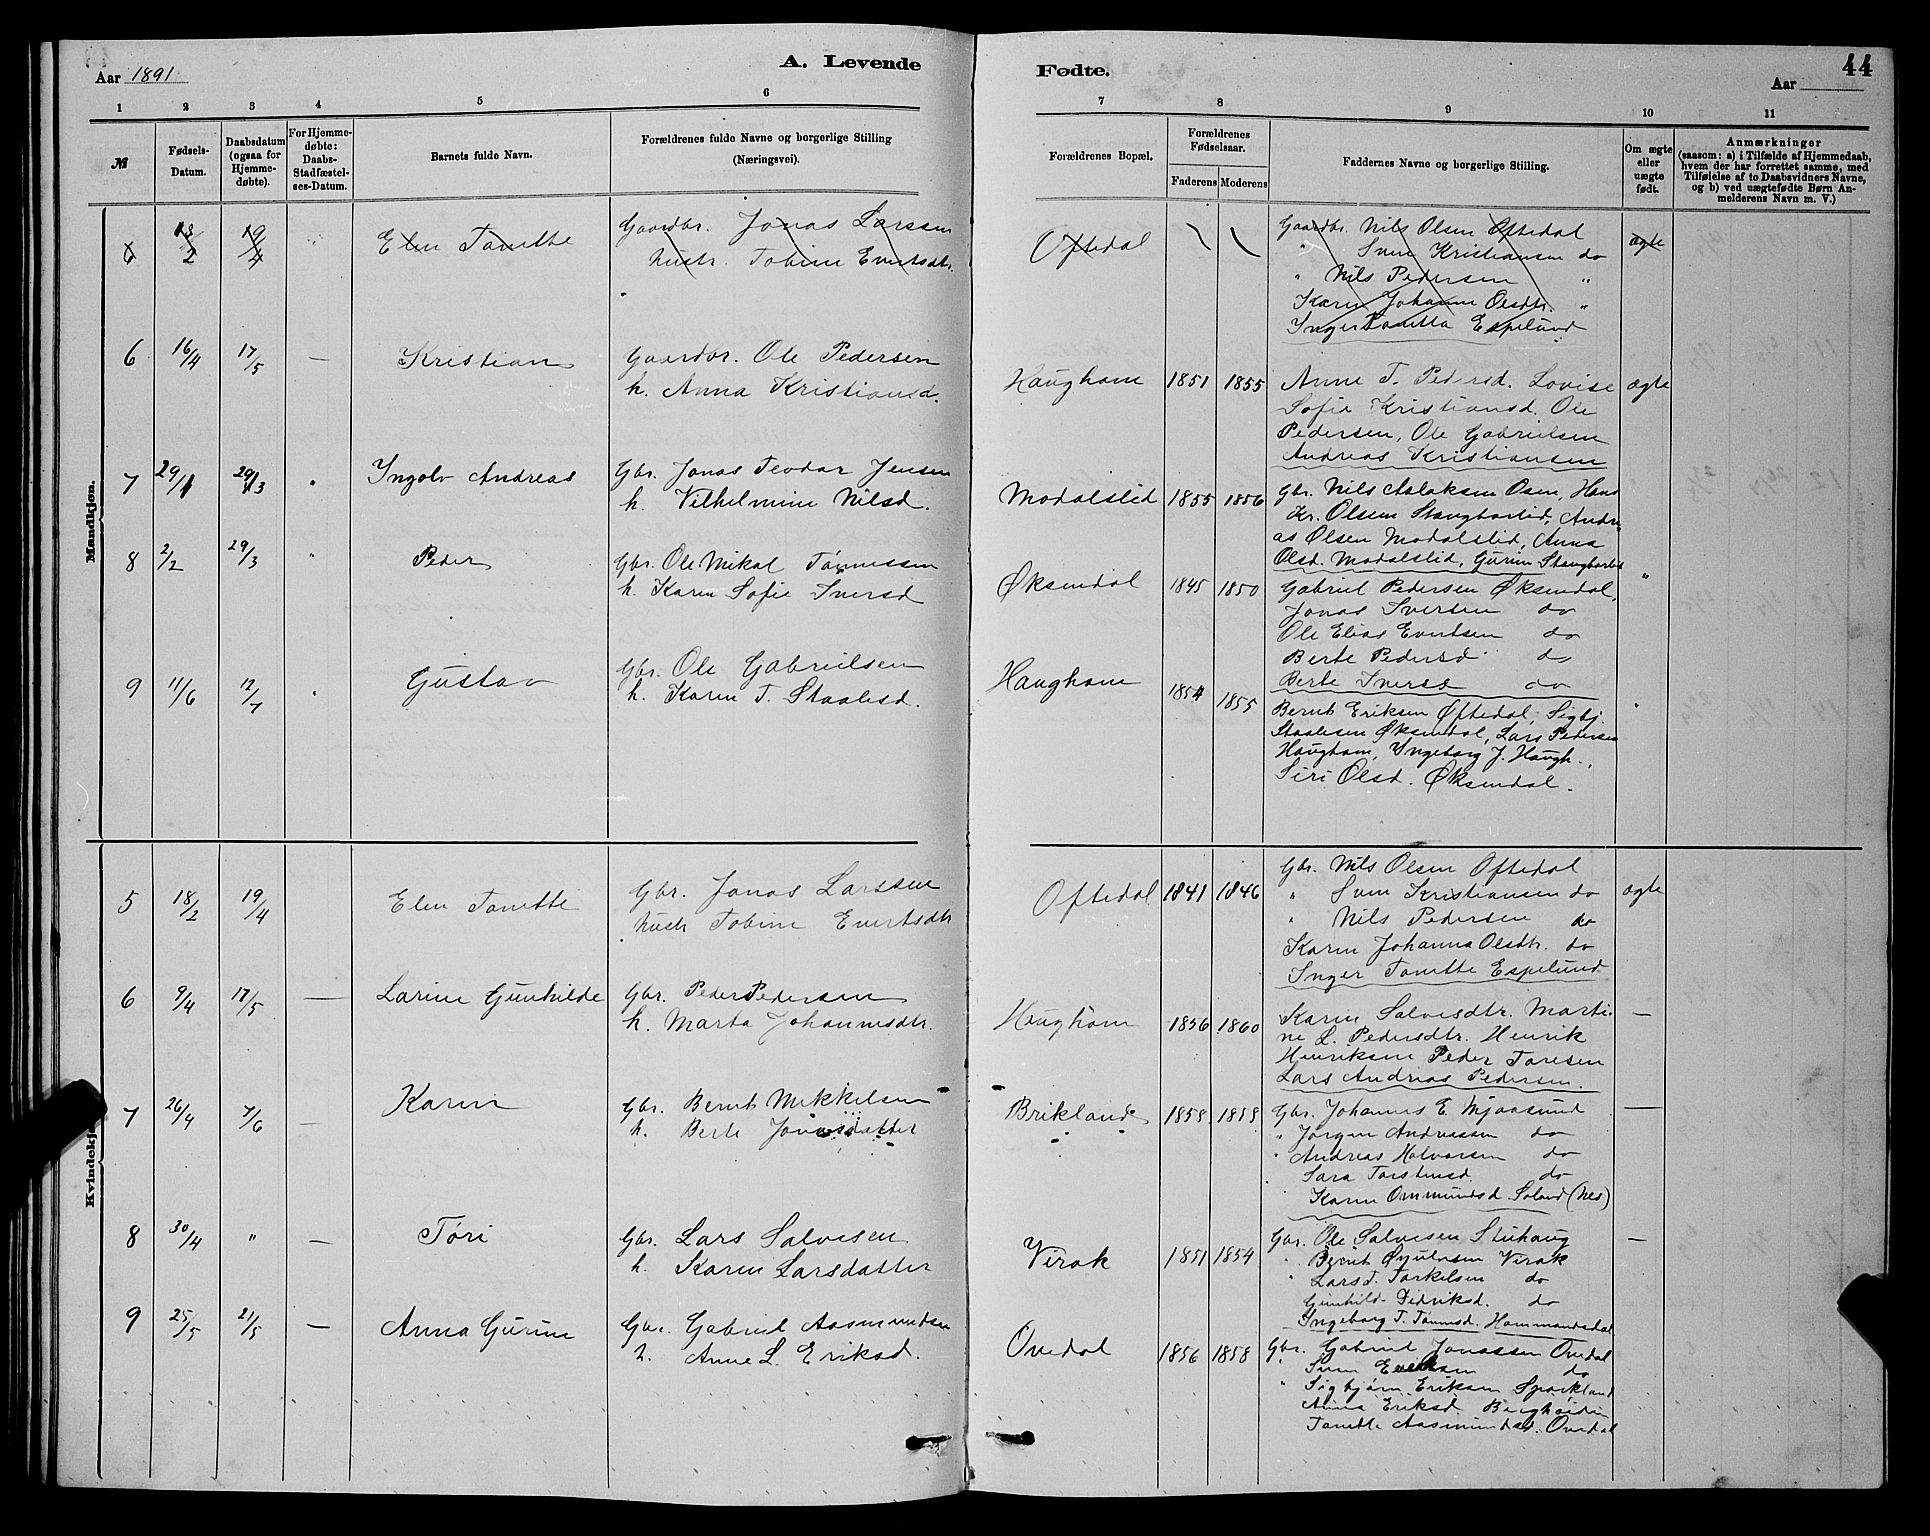 44
A. Levende
Fødte.
Aar 1891
Aar
1 2 3 4 5 6 7 8 9 10 11
№
Fødsels-
Datum.
Daabsdatum
(ogsaa for
Hjemme-
døbte).
For Hjemme-
døbte:
Daabs-
Stadfæstel-
ses-Datum.
Barnets fulde Navn.
Forældrenes fulde Navne og borgerlige Stilling
(Næringsvei).
Forældrenes Bopæl.
Forældrenes
Fødselsaar.
Faderens Moderens
Faddernes Navne og borgerlige Stilling.
Om ægte
eller
uægte
født.
Anmærkninger
(saasom: a) i Tilfælde af Hjemmedaab,
hvem der har forrettet samme, med
Tilføielse af to Daabsvidners Navne,
og b) ved uægtefødte Børn An-
melderens Navn m. V.)
Mandkjøn.
6 18/2 19/4 Elen Tonette
Gaardbr. Jonas Larssen
hustr. Tobine Evertsdtr.
Oftedal
Gaardbr. Nils Olsen Oftedal
" Sven Kristiansen do
" Nils Pedersen "
Karen Johanne Olsdtr. "
Inger Tonetta Espelund
ægte
6 16/4 17/5 — Kristian
Gaardbr. Ole Pedersen
h. Anna Kristiansd.
Haughom 1851 1855
Anne T. Pedersd. Lovise
Sofie Kristiansd. Ole
Pedersen, Ole Gabrielsen
Andreas Kristiansen
ægte
7 29/1 29/3 " Ingolv Andreas
Gbr. Jonas Teodor Jensen
h. Vilhelmine Nilsd.
Modalslid 1855 1856
Gbr. Nils Aslaksen Osen, Hans
Kr. Olsen Stangborlid, Andre
as Olsen Modalslid, Anna
Olsd. Modalslid, Gurine Stangborlid
8 2/2 29/3 " Peder
Gbr. Ole Mikal Tønnessen
h. Karen Sofie Iversd
Øksendal 1845 1850
Gabriel Pedersen Øksendal,
Jonas Iversen do
Ole Elias Evertsen do
Berte Pedersd do
Berte Iversd do
"
9 11/6 12/7 " Gustav
Gbr. Ole Gabrielsen
h. Karen T. Staalesd.
Haughom 1854 1855
Bernt Eriksen Oftedal, Sigbj.
Staalesen Øksendal, Lars Pedersen
Haughom, Ingeborg J. Haugh.,
Siri Olsd. Øksendal.
"
Kvindekjøn.
5 18/2 19/4 Elen Tonette
Gbr. Jonas Larssen
hustr Tobine Evertsdtr
Oftedal 1841 1846
Gbr. Nils Olsen Oftedal
" Sven Kristiansen do
" Nils Pedersen do
Karen Johanna Olsdtr. do
Inger Tonette Espelund
ægte
6 9/4 17/5 — Larine Gunhilde
Gbr. Peder Pedersen
h. Marta Johannesdtr.
Haughom 1856 1860
Karen Salvesdtr. Marti-
ne L. Pedersdtr. Henrik
Henriksen Peder Toresen
Lars Andreas Pedersen.
—
7 26/4 7/6 — Karen
Gbr. Bernt Mikkelsen
h. Berte Jonasdatter
Brikland 1858 1858
Gbr. Johannes E. Mjaasund
" Jørgen Andreassen do
" Andreas Halvorsen do
Sara Torstensd. do
Karen Ommundsd. Seland (Nes)
—
8 30/4 " — Tøri
Gbr. Lars Salvesen
h. Karen Larsdatter
Virak 1851 1854
Gbr. Ole Salvesen Stuhaug
" Bernt Øyulvsen Virak
" Lars T. Torkelsen do
Gunhild Didriksd. do
Ingeborg T. Tønnesd. Hommandsdal
—
9 25/5 21/5 — Anna Gurine
Gbr. Gabriel Aasmundsen
h. Anne L. Eriksd.
Ovedal 1856 1858
Gbr. Gabriel Jonassen Ovedal
" Sven do
" Sigbjørn Eriksen Sporkland
Anna Eriksd.
Tonette Aasmundsd. Ovedal